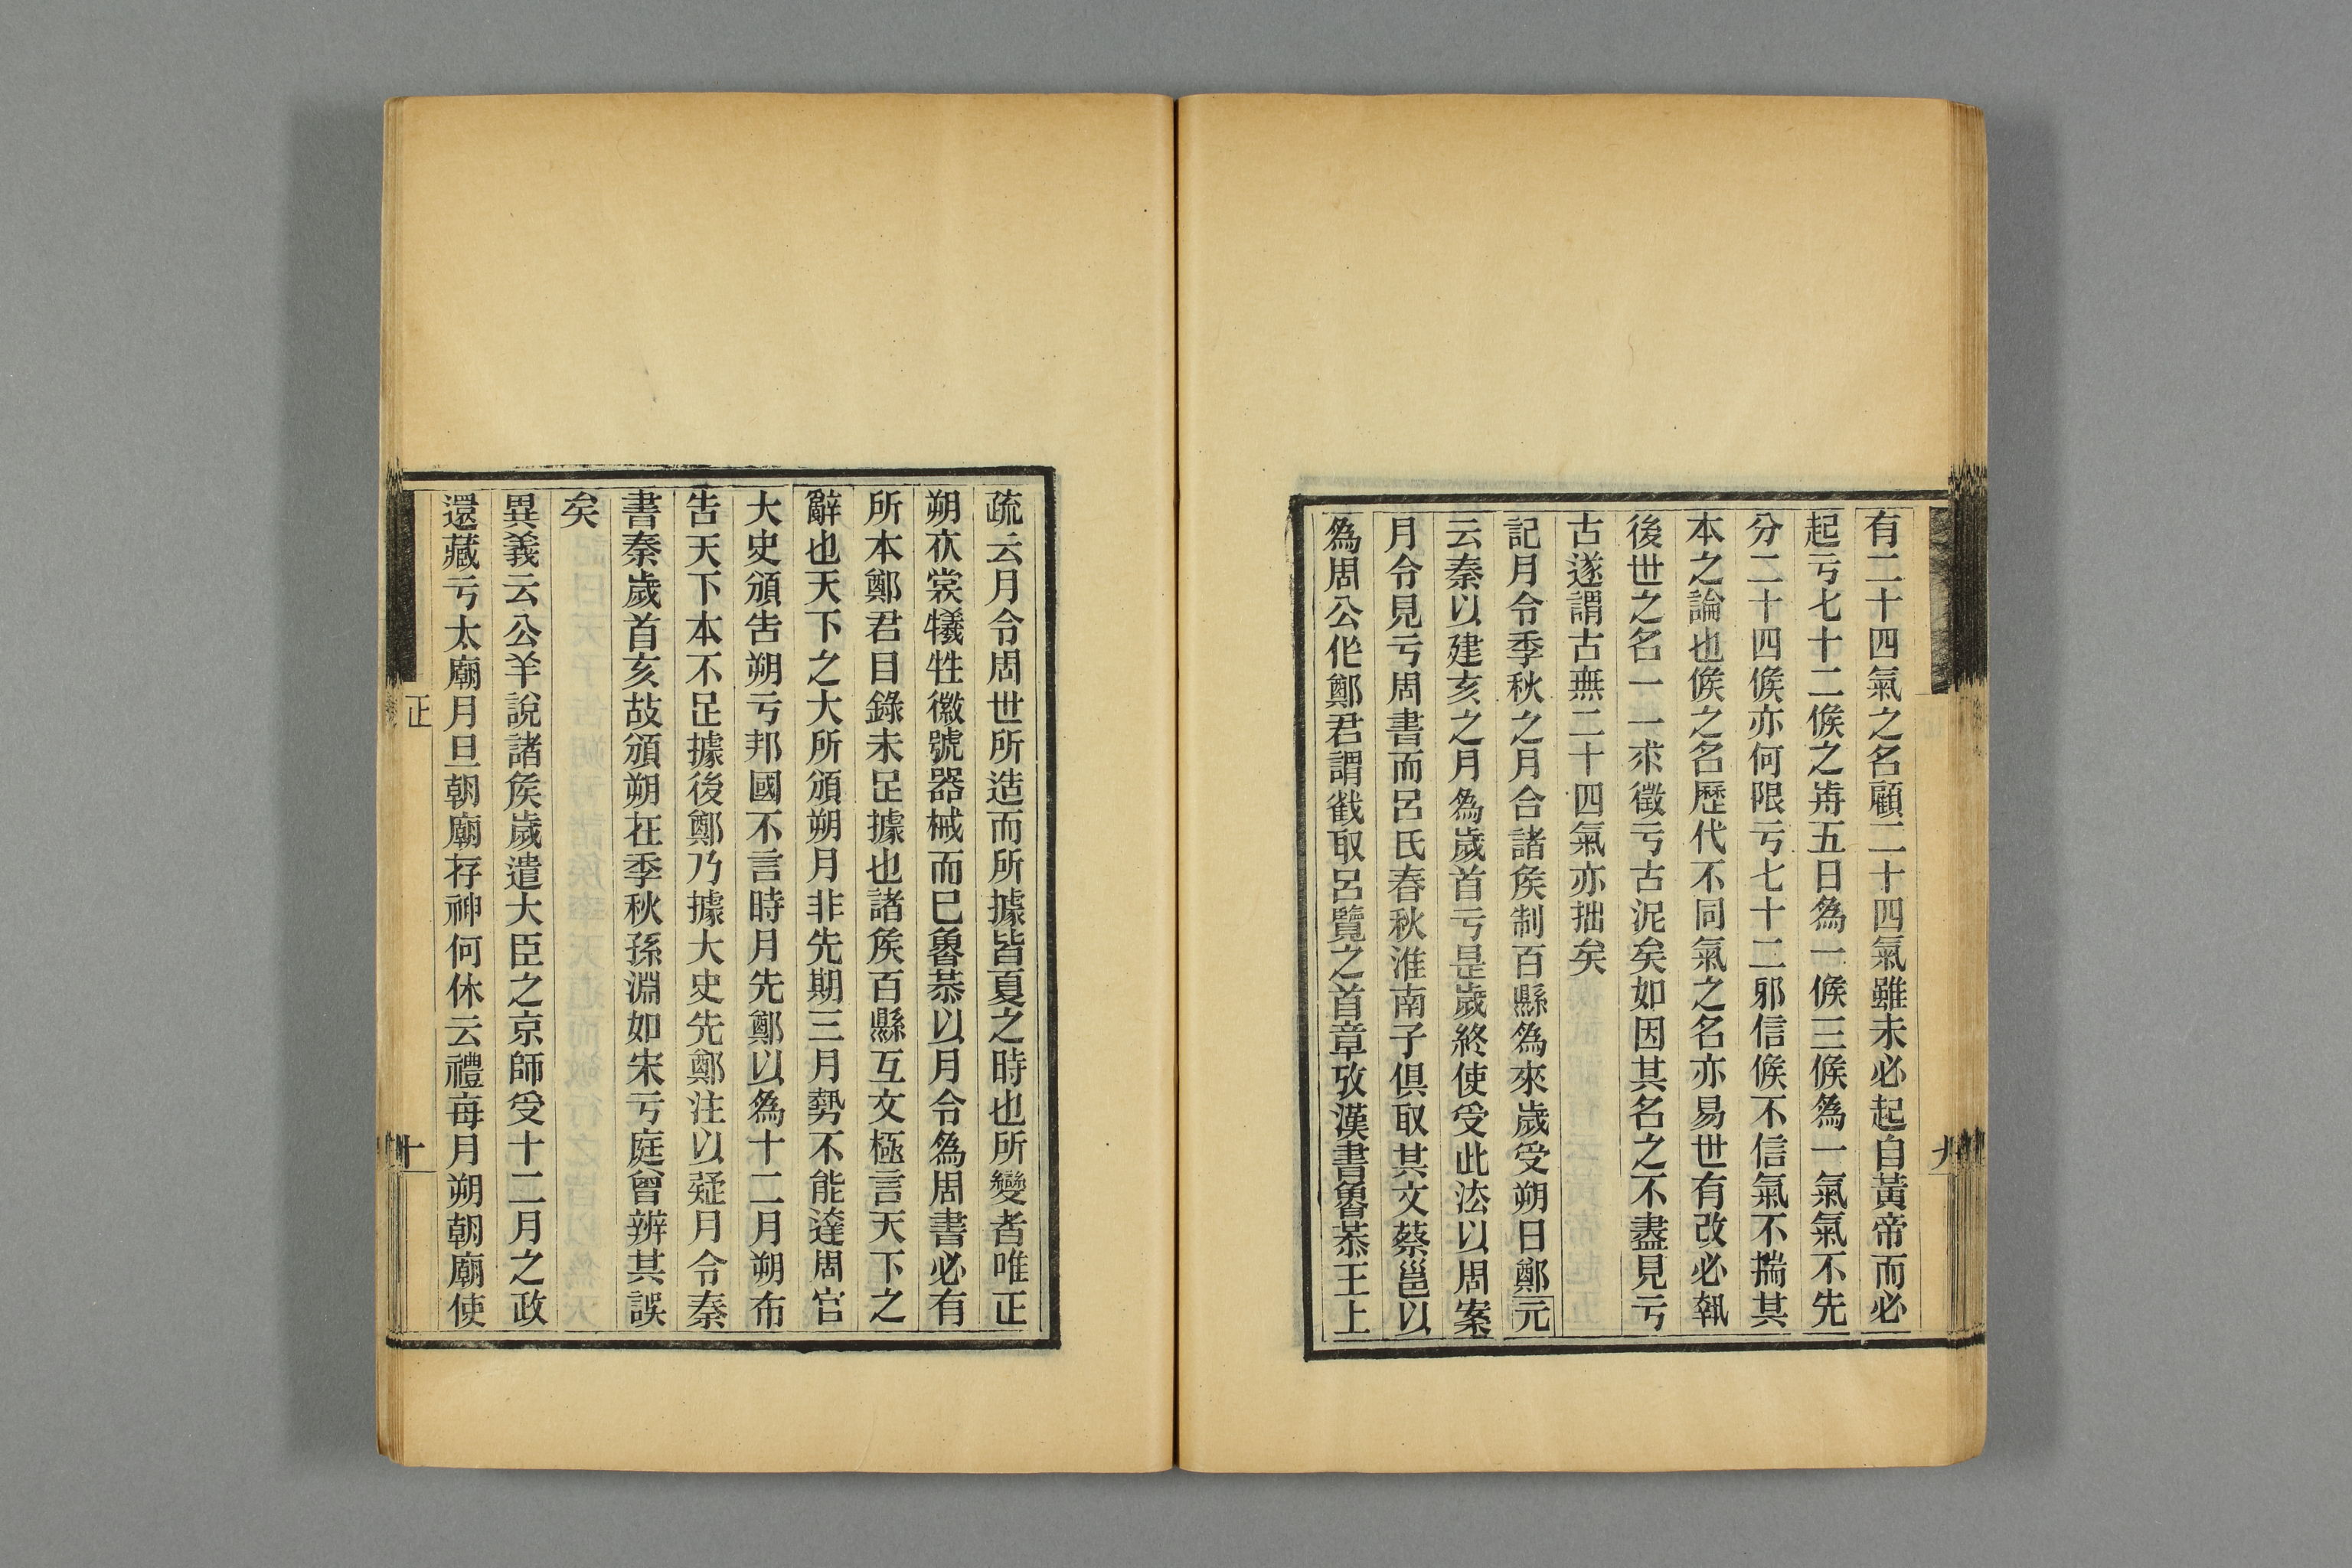 有二十四氣之名顧二十四氣雖未必起自黃帝而必
起亏七十二𠊱之歬五日爲一𠊱三𠊱爲一氣氣不先
分二十四𠊱亦何限亏七十二邪信𠊱不信氣不揣其
本之論也𠊱之名歷代不同氣之名亦易世有改必執
後世之名一一求徵亏古泥矣如因其名之不盡見亏
古遂謂古無二十四氣亦拙矣
記月令季秋之月合諸矦制百縣爲來歲受朔日鄭元
云秦以建亥之月爲歲首亏是歲終使受此法以周案
月令見亏周書而呂氏春秋淮南子俱取其文蔡邕以
爲周公作鄭君謂截取呂覽之首章攷漢書魯恭王上
九
疏云月令周世所造而所據皆夏之時也所變者唯正
朔衣裳犧牲徽號器械而已魯恭以月令爲周書必有
所本鄭君目錄未足據也諸矦百縣互文極言天下之
辭也天下之大所頒朔月非先期三月勢不能達周官
大史頒告朔亏邦國不言時月先鄭以爲十二月朔布
告天下本不足據後鄭乃據大史先鄭注以疑月令秦
書秦歲首亥故頒朔在季秋孫淵如宋亏庭曾辨其誤
矣
異義云公羊說諸矦歲遣大臣之京師受十二月之政
還藏亏太廟月旦朝廟存神何休云禮每月朔朝廟使
正
十